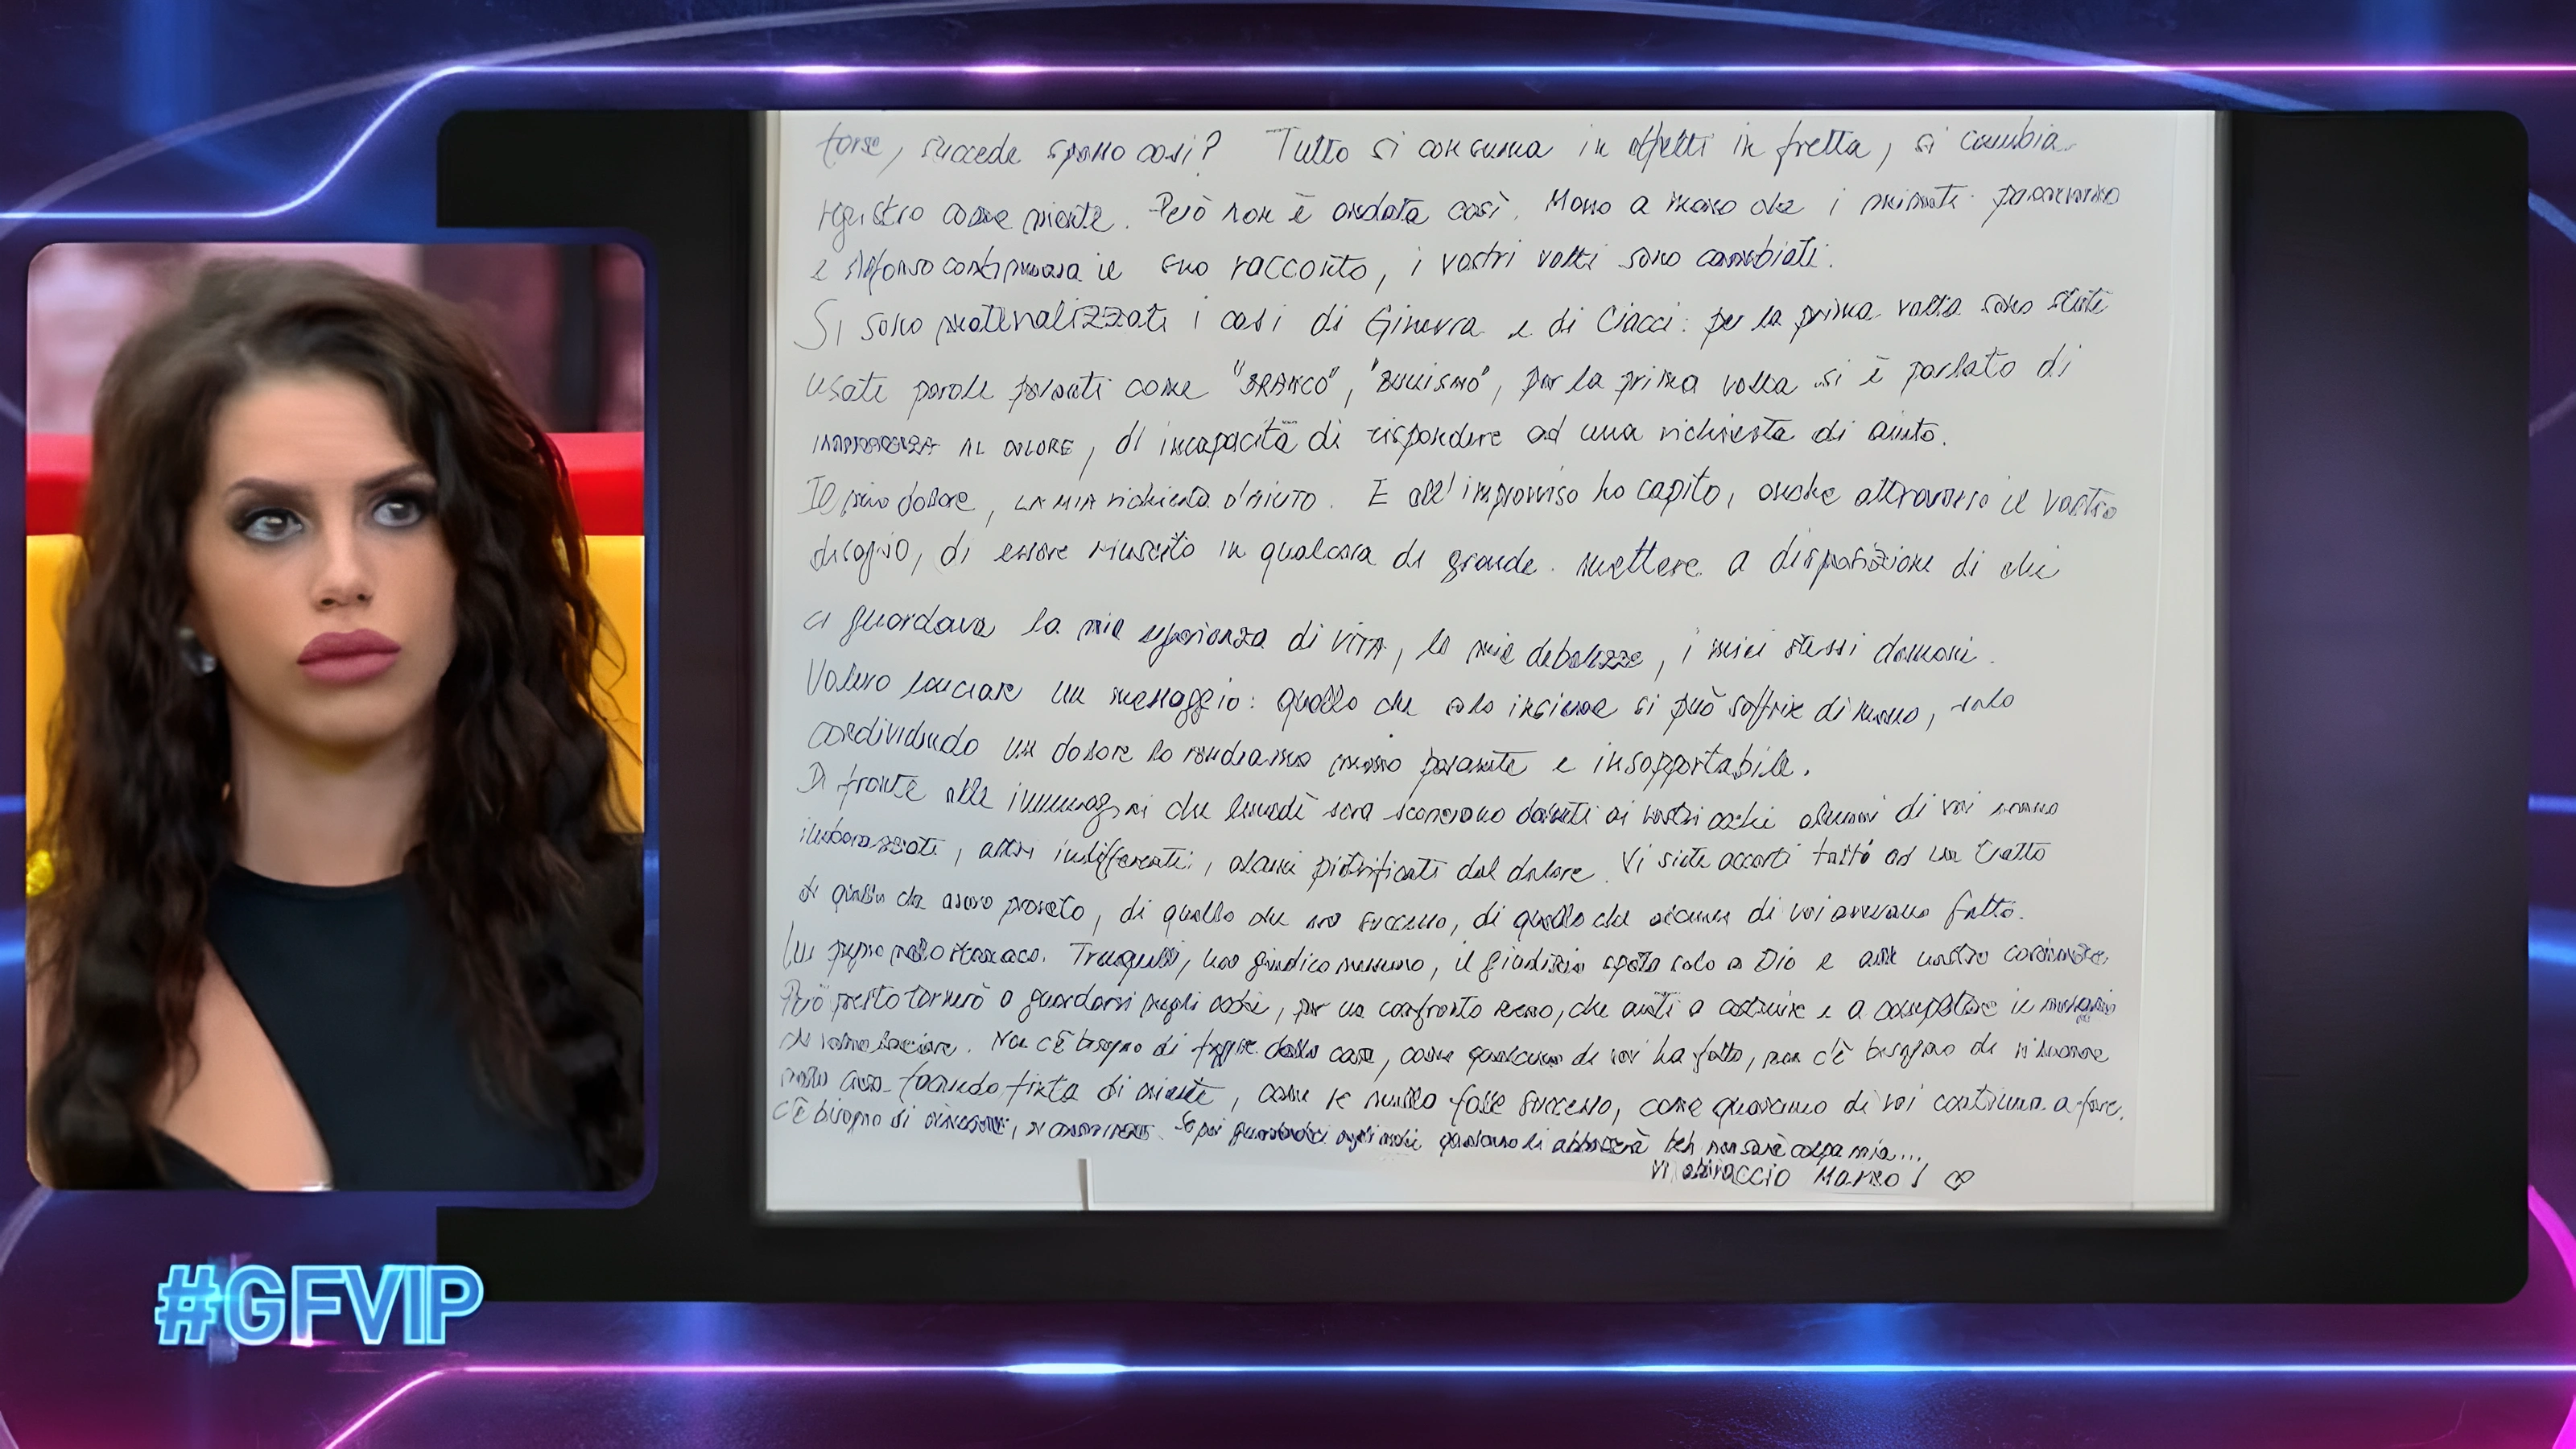 forse, succede spesso così? Tutto si consuma in effetti in fretta, si cambia
registro come niente. Però non è andata così. Mano a mano che i minuti passavano
e Alfonso continuava il suo racconto, i vostri volti sono cambiati.
Si sono materializzati i casi di Ginevra e di Ciacci: per la prima volta sono state
usate parole pesanti come "BRANCO", "BULLISMO", per la prima volta si è parlato di
AL DOLORE, di incapacità di rispondere ad una richiesta di aiuto.
Il mio dolore, LA MIA richiesta D'AIUTO. E all'improvviso ho capito, anche attraverso il vostro
disagio, di essere riuscito in qualcosa di grande: mettere a disposizione di chi
ci guardava la mia esperienza di VITA, le mie debolezze, i miei stessi demoni.
Volevo lanciare un messaggio: quello che solo insieme si può soffrire di meno, solo
condividendo un dolore lo rendiamo meno pesante e insopportabile.
Di fronte alle immagini che lunedì sera scorrevano davanti ai vostri occhi alcuni di voi erano
imbarazzati, altri indifferenti, alcuni pietrificati dal dolore. Vi siete accorti tutto ad un tratto
di quello che avevo provato, di quello che era successo, di quello che alcuni di voi avevano fatto.
Un pugno nello stomaco. Tranquilli, non giudico nessuno, il giudizio spetta solo a Dio e alle vostre coscienze.
Però presto tornerò a guardarvi negli occhi, per un confronto sereno, che aiuti a costruire e a completare il messaggio
che volevo lanciare. Non c'è bisogno di fuggire dalla casa, come qualcuno di voi ha fatto, non c'è bisogno di rimanere
nella casa facendo finta di niente, come se nulla fosse successo, come qualcuno di voi continua a fare.
C'è bisogno di, di. Se poi guardandoci negli occhi qualcuno li abbasserà beh non sarà colpa mia...
Vi abbraccio Marco!
#GFVIP